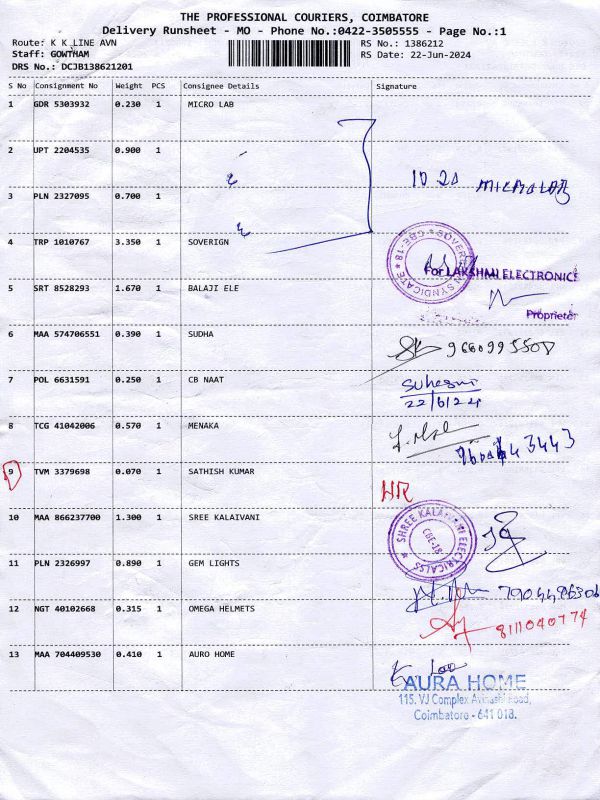 THE PROFESSIONAL COURIERS, COIMBATORE
Delivery Runsheet - MO - Phone No.:0422-3505555 - Page No.:1
Route: K K LINE AVN
Staff: GOWTHAM
DRS No.: DCJB138621201
RS No.: 1386212
RS Date: 22-Jun-2024
S No Consignment No Weight PCS Consignee Details Signature
1 GDR 5303932 0.230 1 MICRO LAB
2 UPT 2204535 0.900 1
10 20 MICROLAB
3 PLN 2327095 0.700 1
4 TRP 1010767 3.350 1 SOVERIGN
SOVEREIGN SYNDICATE * CBE-18 *
For LAKSHMI ELECTRONICS
5 SRT 8528293 1.670 1 BALAJI ELE
Proprietor
6 MAA 574706551 0.390 1 SUDHA
9660995508
7 POL 6631591 0.250 1 CB NAAT
22/6/24
8 TCG 41042006 0.570 1 MENAKA
9 TVM 3379698 0.070 1 SATHISH KUMAR
HR
10 MAA 866237700 1.300 1 SREE KALAIVANI
SHREE KALAIVANI ELECTRICALSS
CBE-18
11 PLN 2326997 0.890 1 GEM LIGHTS
12 NGT 40102668 0.315 1 OMEGA HELMETS
8111040774
13 MAA 704409530 0.410 1 AURO HOME
AURA HOME
115, VJ Complex Avinashi Road,
Coimbatore - 641 018.